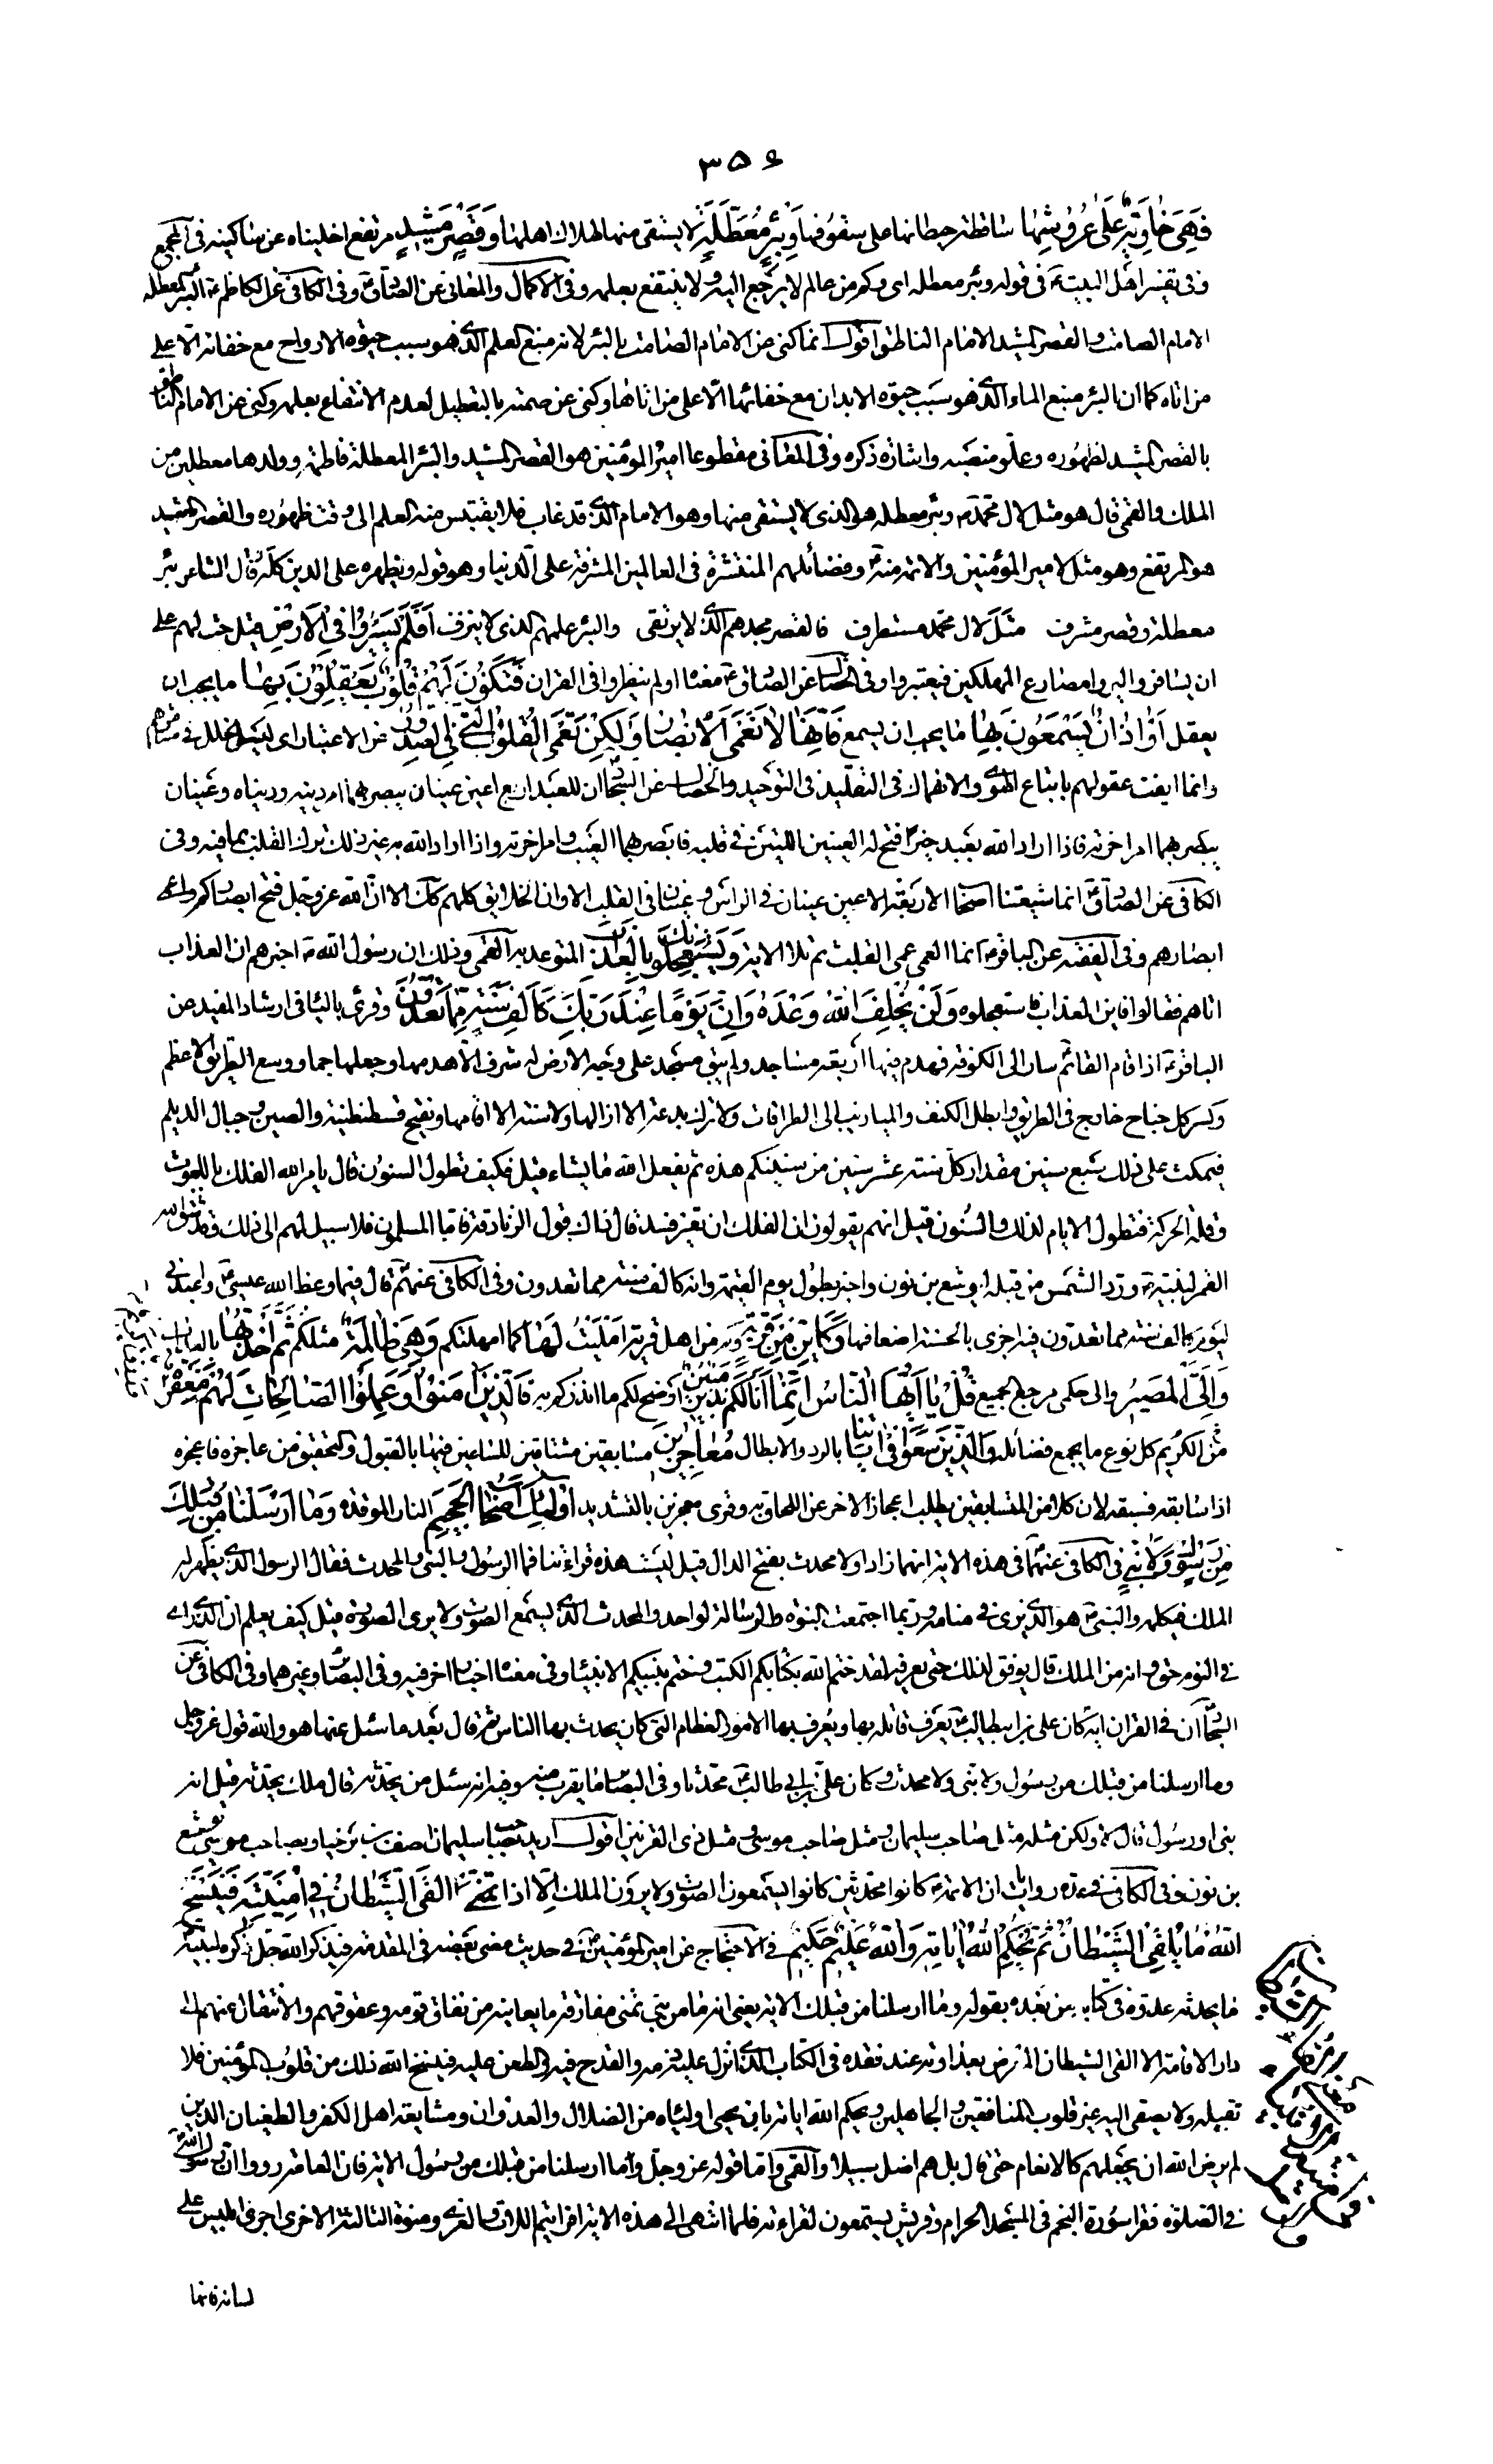 ٣٥٦
فَهِيَ خاوِيَةٌ عَلى عُرُوشِها ساقطة حيطانها على سقوفها وَبِئْرٍ مُعَطَّلَةٍ لا يستقى منها لهلاك اهلها وَقَصْرٍ مَشِيدٍ مرتفع اخليناه عن ساكنيه فى المجمع
وفى تفسير اهل البيت ع فى قوله وبئر معطلة اى وكم من عالم لا يرجع اليه ولا ينتفع بعلمه وفى الاكمال والمعانى عن الصادق ع وفى الكافى عن الكاظم ع البئر المعطلة
الامام الصامت والقصر المشيد الامام الناطق اقول انما كنى عن الامام الصامت بالبئر لانه منبع العلم الذى هو سبب حيوة الارواح مع خفائه الا على
من اتاه كما ان البئر منبع الماء الذى هو سبب حيوة الابدان مع خفائها الّا على من اتاها وكنى عن صمته بالتعطيل لعدم الانتفاع بعلمه وكنى عن الامام الناطق
بالقصر المشيد لظهوره وعلو منصبه واشادة ذكره وفى المعانى مقطوعا امير المؤمنين هو القصر المشيد والبئر المعطلة فاطمة وولدها معطلين من
الملك والقمى قال هو مثل لال محمد ص وبئر معطلة هو الذى لا يستقى منها وهو الامام الذى قد غاب فلا يقتبس منه العلم الى وقت ظهوره والقصر المشيد
هو المرتفع وهو مثل لامير المؤمنين والائمة منه ع وفضائلهم المنتشرة فى العالمين المشرفة على الدنيا وهو قوله ليظهره على الدين كله قال الشاعر بئر
معطلة وقصر مشرف مثل لال محمد مستطرف فالقصر مجدهم الذى لا يرتقى والبئر علمهم الذى لا ينزف أَفَلَمْ يَسِيرُوا فِي الْأَرْضِ قيل حث لهم على
ان يسافروا ليروا مصارع المهلكين فيعتبروا وفى الخصال عن الصادق ع معناه اولم ينظروا فى القران فَتَكُونَ لَهُمْ قُلُوبٌ يَعْقِلُونَ بِها ما يجب ان
يعقل أَوْ آذانٌ يَسْمَعُونَ بِها ما يجب ان يسمع فَإِنَّها لا تَعْمَى الْأَبْصارُ وَلكِنْ تَعْمَى الْقُلُوبُ الَّتِي فِي الصُّدُورِ عن الاعتبار اى ليس الخلل فى مشاعرهم
وانما ايفت عقولهم باتباع الهوى والانهماك فى التقليد فى التوحيد والخصال عن السجاد ان للعبد اربع اعين عينان يبصر بهما امر دينه ودنياه وعينان
يبصر بهما امر اخرته فاذا اراد الله بعبد خيرا فتح له العينين اللتين فى قلبه فابصر بهما الغيب وامر اخرته واذا اراد الله به غير ذلك ترك القلب بما فيه وفى
الكافى عن الصادق ع انما شيعتنا اصحاب الاربعة الاعين عينان فى الراس وعينان فى القلب الا وان الخلايق كلهم كذلك الا ان الله عز وجل فتح ابصاركم واعمى
ابصارهم وفى الفقيه عن الباقر ع انما العمى عمى القلب ثم تلا الاية وَيَسْتَعْجِلُونَكَ بِالْعَذابِ المتوعد به القمى وذلك ان رسول الله ص اخبرهم ان العذاب
اتاهم فقالوا فاين العذاب فاستعجلوه وَلَنْ يُخْلِفَ اللَّهُ وَعْدَهُ وَإِنَّ يَوْماً عِنْدَ رَبِّكَ كَأَلْفِ سَنَةٍ مِمَّا تَعُدُّونَ وقرئ بالياء فى ارشاد المفيد عن
الباقر ع اذا قام القائم سار الى الكوفة فهدم فيها اربعة مساجد ولم يبق مسجد على وجه الارض له شرف الّا هدمها وجعلها جماء ووسع الطريق الاعظم
وكسر كل جناح خارج فى الطريق وابطل الكنف والميازيب الى الطرقات ولا ترك بدعة الا ازالها ولا سنة الا اقامها ويفتح قسطنطنية والصين وجبال الديلم
فيمكث على ذلك سبع سنين مقدار كل سنة عشر سنين من سنينكم هذه ثم يفعل الله ما يشاء قيل فكيف تطول السنون قال يامر الله الفلك باللبوث
وقلة الحركة فتطول الايام لذلك والسنون قيل انهم يقولون ان الفلك ان تغير فسد قال ذاك قول الزنادقة فاما المسلمون فلا سبيل لهم الى ذلك وقد شق الله
القمر لنبيه ص ورد الشمس من قبله ليوشع بن نون واخبر بطول يوم القيمة وانه كالف سنة مما تعدون وفى الكافى عنهم ع قال فيما وعظ الله عيسى ع واعبدنى
ليوم كالف سنة مما تعدون فيه اجزى بالحسنة اضعافها وَكَأَيِّنْ مِنْ قَرْيَةٍ وكم من اهل قرية أَمْلَيْتُ لَها كما امهلتكم وَهِيَ ظالِمَةٌ مثلكم ثُمَّ أَخَذْتُها بالعذاب
وَإِلَيَّ الْمَصِيرُ والى حكمى مرجع الجميع قُلْ يا أَيُّهَا النَّاسُ إِنَّما أَنَا لَكُمْ نَذِيرٌ مُبِينٌ اوضح لكم ما انذركم به فَالَّذِينَ آمَنُوا وَعَمِلُوا الصَّالِحاتِ لَهُمْ مَغْفِرَةٌ
من الكريم كل نوع ما يجمع فضائله وَالَّذِينَ سَعَوْا فِي آياتِنا بالرد والابطال مُعاجِزِينَ مسابقين مشاقين للساعين فيها بالقبول والتحقيق من عاجزه فاعجزه
اذا سابقه فسبقه لان كلا من المتسابقين يطلب اعجاز الاخر عن اللحاق به وقرئ معجزين بالتشديد أُولئِكَ أَصْحابُ الْجَحِيمِ النار الموقدة وَما أَرْسَلْنا مِنْ قَبْلِكَ
مِنْ رَسُولٍ وَلا نَبِيٍّ فى الكافى عنهما فى هذه الاية انهما زادا ولا محدث بفتح الدال قيل ليست هذه قراءتنا فما الرسول والنبى والمحدث فقال الرسول الذى يظهر له
الملك فيكلمه والنبى ع هو الذى يرى فى منامه وربما اجتمعت النبوة والرسالة لواحد والمحدث الذى يسمع الصوت ولا يرى الصورة قيل كيف يعلم ان الذى راى
فى النوم حق وانه من الملك قال يوفق لذلك حتى يعرفه لقد ختم الله بكتابكم الكتب وختم بنبيكم الانبياء وفى معناه اخبار اخر فيه وفى البصائر وغيرهما وفى الكافى عن
السجاد ان فى القران اية كان على بن ابيطالب ع يعرف قاتله بها ويعرف بها الامور العظام التى كان يحدث بها الناس ثم قال بعد ما سئل عنها هو والله قول عز وجل
وما ارسلنا من قبلك من رسول ولا نبى ولا محدث وكان على بن ابى طالب ع محدثا وفى البصائر ما يقرب منه وفيه انه سئل من يحدثه قال ملك يحدثه قيل انه
نبى او رسول قال لا ولكن مثله مثل صاحب سليمان ومثل صاحب موسى ومثل ذى القرنين اقول اريد بصاحب سليمان اصف بن برخيا وبصاحب موسى يوشع
بن نون وفى الكافى فى عدة روايات ان الائمة ع كانوا محدثين كانوا يسمعون الصوت ولا يرون الملك إِلَّا إِذا تَمَنَّى أَلْقَى الشَّيْطانُ فِي أُمْنِيَّتِهِ فَيَنْسَخُ
اللَّهُ ما يُلْقِي الشَّيْطانُ ثُمَّ يُحْكِمُ اللَّهُ آياتِهِ وَاللَّهُ عَلِيمٌ حَكِيمٌ فى الاحتجاج عن امير المؤمنين ع فى حديث مضى بعضه فى المقدمة فيذكر الله جل ذكره لنبيه
ما يحدثه عدوه فى كتابه من بعده بقوله وما ارسلنا من قبلك الاية يعنى انه ما من نبى تمنى مفارقة ما يعاينه من نفاق قومه وعقوقهم والانتقال عنهم الى
دار الاقامة الا القى الشيطان المعرض بعداوته عند فقده فى الكتاب الذى انزل عليه ذمه والقدح فيه والطعن عليه فينسخ الله ذلك من قلوب المؤمنين فلا
تقبله ولا يصغى اليه غير قلوب المنافقين والجاهلين ويحكم الله اياته بان يحمى اولياءه من الضلال والعدوان ومشايعة اهل الكفر والطغيان الذين
لم يرض الله ان يجعلهم كالانعام حتى قال بل هم اضل سبيلا والقمى واما قوله عز وجل وما ارسلنا من قبلك من رسول الاية فان العامة رووا ان رسول الله ص
فى الصلوة فقرا سورة النجم فى المسجد الحرام وقريش يستمعون لقراءته فلما انتهى الى هذه الاية افرايتم اللات والعزى ومنوة الثالثة الاخرى اجرى ابليس على
لسانه فانها